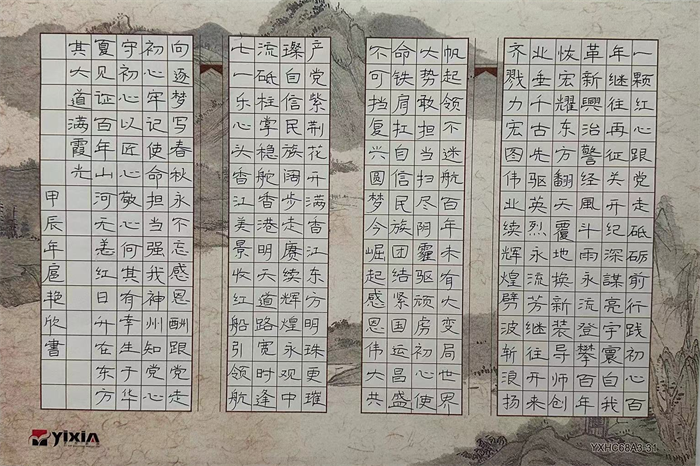 一颗红心跟党走砥砺前行践初心百
年继往再征关开纪深謀亮宇寰自我
革新興治警经風斗雨永流登攀百年
恢宏耀东方翻天覆地换新装导师创
业垂千古先驱英烈永流芳继往开来
齐戮力宏图伟业续辉煌劈波斩浪扬
帆起领不迷航百年未有大变局世界
大势敢担当扫尽阴霾驱顽虏初心使
命铁肩扛自信民族团结紧国运昌盛
不可挡复兴圆梦今崛起感恩伟大共
产党紫荆花开满香江东方明珠更璀
璨自信民族阔步走赓续辉煌永观中
流砥柱掌稳舵香港明天道路宽时逢
七一乐心头香江美景收红船引领航
向逐梦写春秋永不忘感恩酬跟党走
初心牢记使命担当强我神州知党心
守初心以匠心敬心何其有幸生于华
夏见证百年山河无恙红日升在东方
其大道满霞光
甲辰年扈艳欣書
YIXIA
YXHC68A3-31